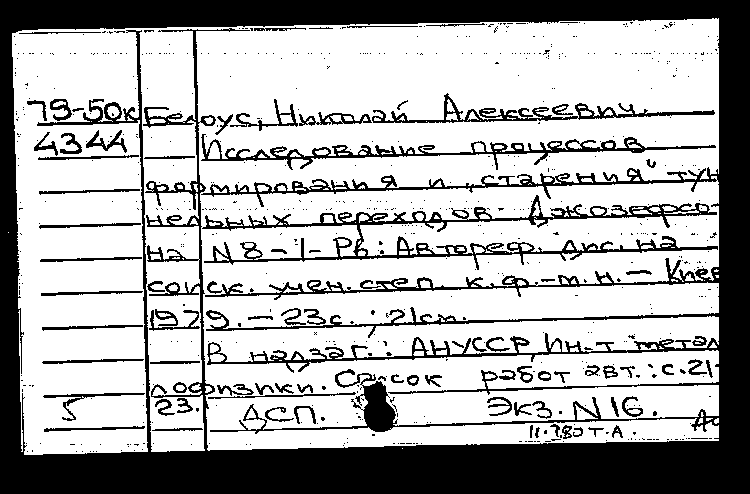 79-50к Белоус, Николай Алексеевич.
4344 Исследование процессов
формирования и „старения" тун
нельных переходов Джозефсо-
на N8-I-Pb: Автореф. дис. на
соиск. учен. степ. к. ф.-м. н. - Киев
1979. - 23с. ; 21см.
В надзаг.: АНУССР, Ин-т метал
лофизики. Список работ авт.: с. 21-
5 23. ДСП. Экз. N 16.